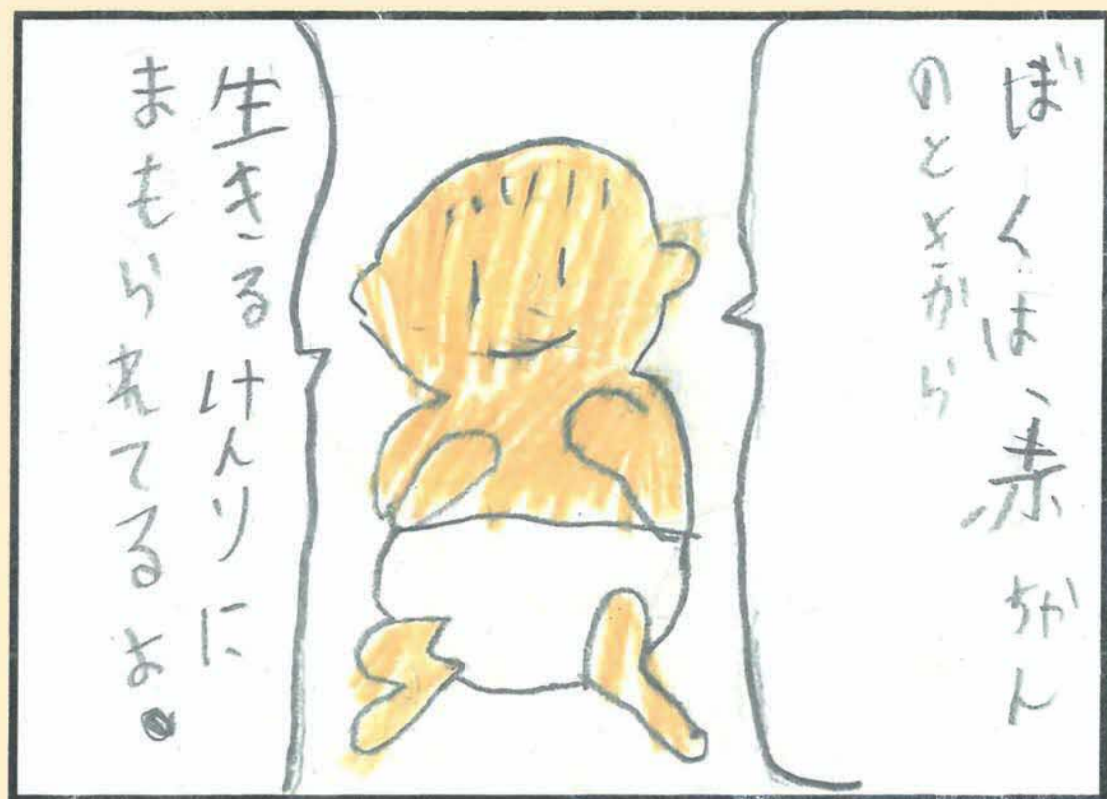 ぼくは、赤ちゃん
のときから
生きるけんりに
まもられてるよ。